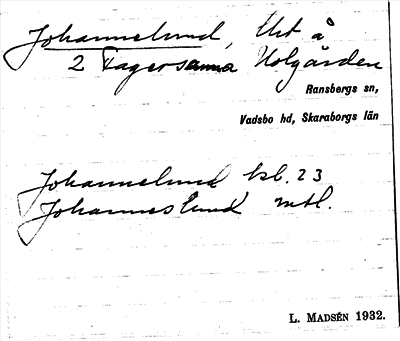 Johannelund, Utt å
2 Fagersanna Holgården
Ransbergs sn,
Vadsbo hd, Skaraborgs län
Johannelund kbl. 23
Johanneslund mtl.
L. MADSÉN 1932.